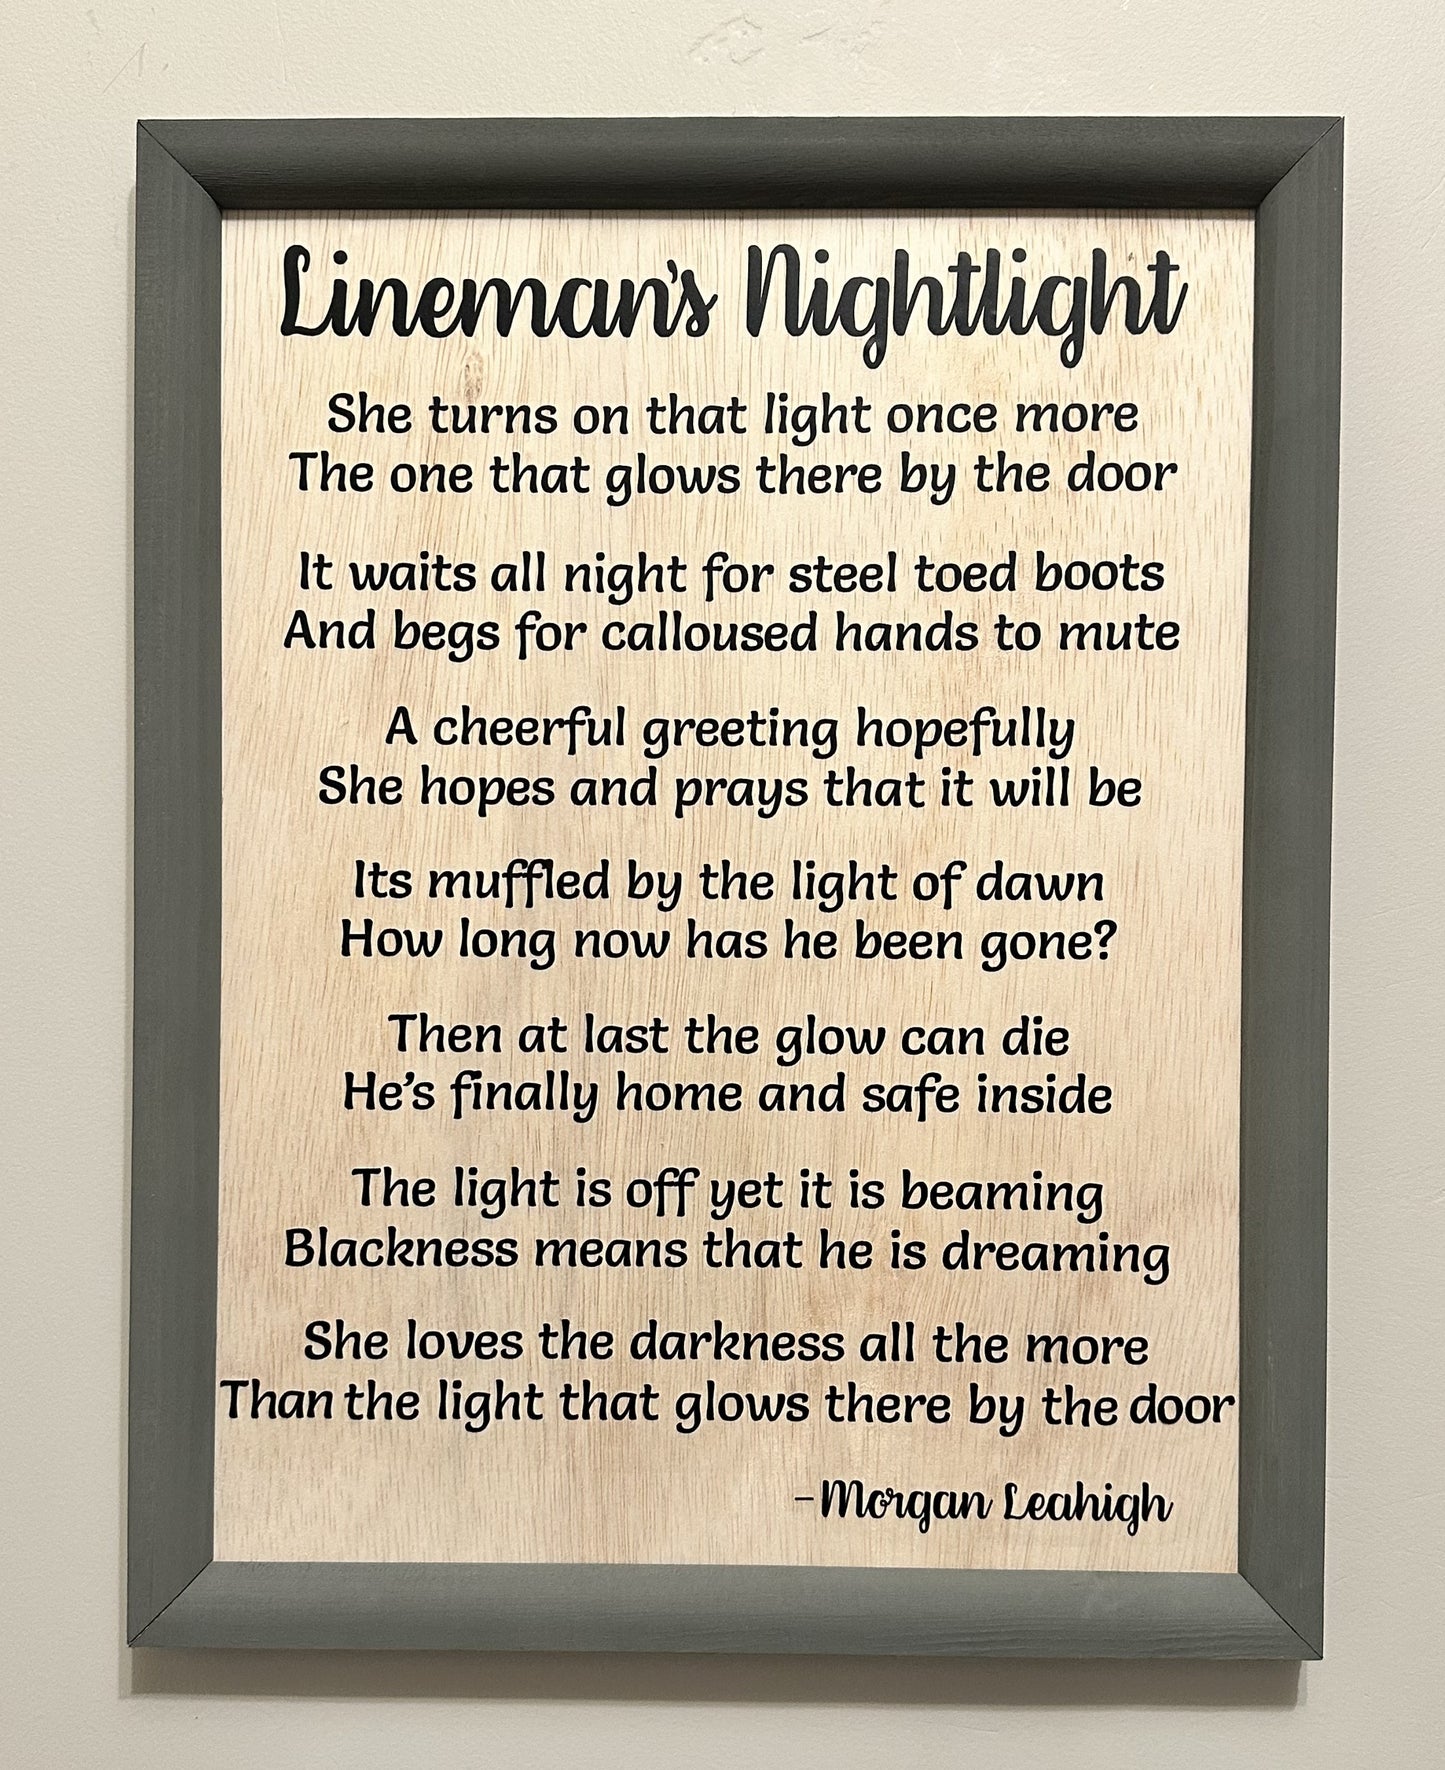 Lineman's Nightlight
She turns on that light once more
The one that glows there by the door
It waits all night for steel toed boots
And begs for calloused hands to mute
A cheerful greeting hopefully
She hopes and prays that it will be
Its muffled by the light of dawn
How long now has he been gone?
Then at last the glow can die
He's finally home and safe inside
The light is off yet it is beaming
Blackness means that he is dreaming
She loves the darkness all the more
Than the light that glows there by the door
-Morgan Leahigh